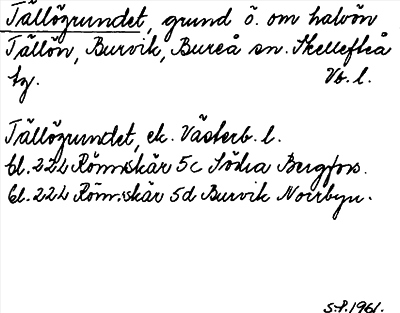 Tällögrundet, grund ö. om halvön
Tällön, Burvik, Bureå sn. Skellefteå
tg. Vb. l.
Tällögrundet, ek. Västerb. l.
bl. 222 Rönnskär 5c Södra Bergfors.
bl. 222 Rönnskär 5d Burvik Norrbyn.
S.P. 1961.